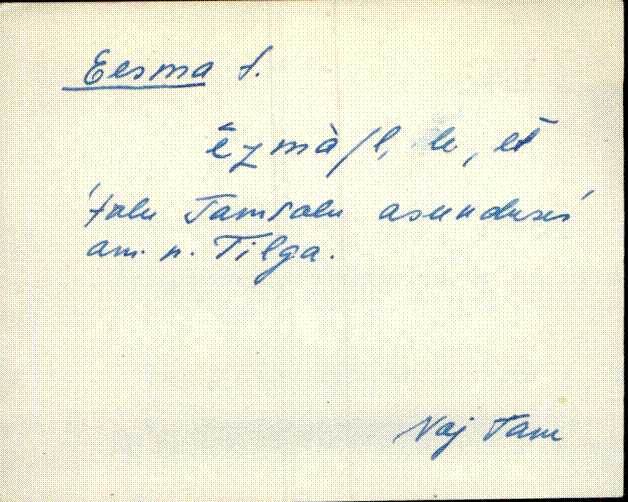 Eesma t.
ēzmà/l, le, et
'talu Tamsalu asunduses'
am. n. Tilga.
Vaj Tam